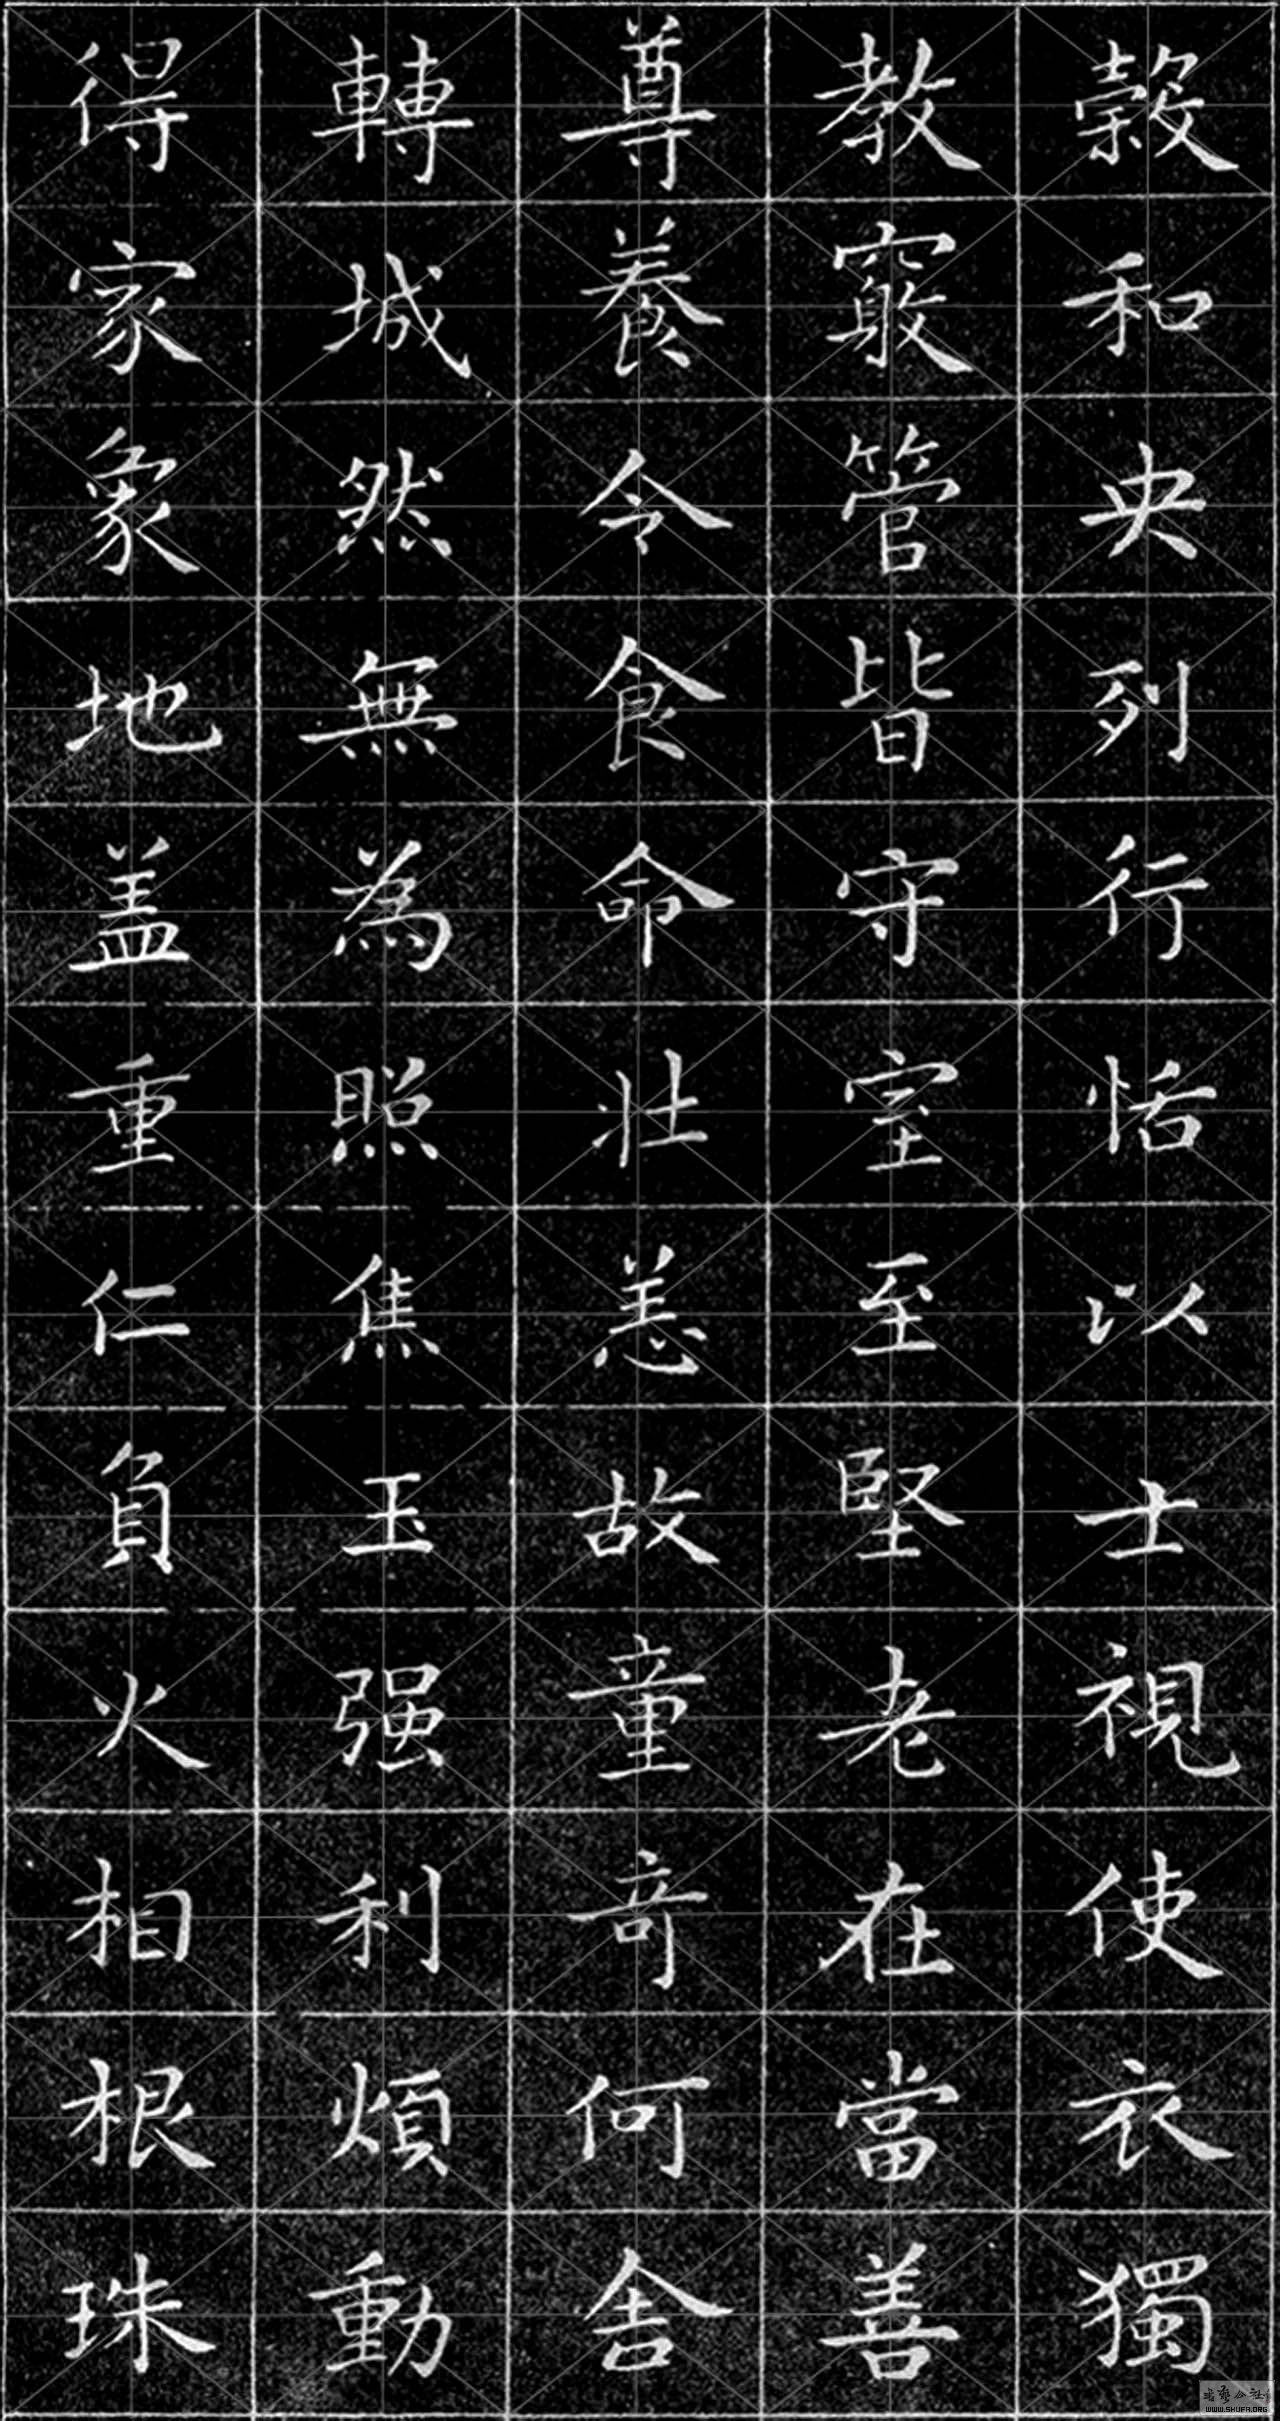 穀和央列行恬以士視使衣獨
教窮管皆守室至堅老在當善
尊養令食命壯恙故童奇何舍
轉城然無為照焦玉强利煩動
得家象地盖重仁負火相根珠
WWW.SHUFA.ORG